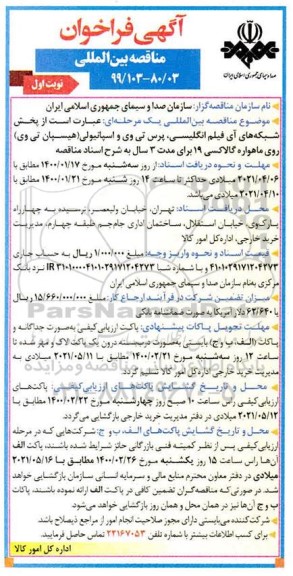 آگهی فراخوان
مناقصه بین‌المللی
۹۹/۱۰۳-۸۰/۰۳
نوبت اول
صدا و سیمای جمهوری اسلامی ایران
نام سازمان مناقصه‌گزار: سازمان صدا و سیمای جمهوری اسلامی ایران
موضوع مناقصه بین‌المللی یک مرحله‌ای: عبارت است از پخش
شبکه‌های آی فیلم انگلیسی، پرس تی وی و اسپانیولی (هیسپان تی وی)
روی ماهواره گالاکسی ۱۹ برای مدت ۳ سال به شرح اسناد مناقصه
مهلت و نحوه دریافت اسناد: از روز سه‌شنبه مورخ ۱۴۰۰/۰۱/۱۷ مطابق با
۲۰۲۱/۰۴/۰۶ میلادی حداکثر تا ساعت ۱۴ روز شنبه مورخ ۱۴۰۰/۰۱/۲۱ مطابق با
۲۰۲۱/۰۴/۱۰ میلادی می‌باشد.
محل دریافت اسناد: تهران، خیابان ولیعصر، نرسیده به چهارراه
پارک‌وی، خیابان استقلال، ساختمان اداری جام‌جم، طبقه چهارم، مدیریت
خرید خارجی، اداره کل امور کالا
قیمت اسناد و نحوه واریز وجه: مبلغ ۱/۰۰۰/۰۰۰ ریال به حساب جاری
مرکزی به‌نام سازمان صدا و سیمای جمهوری اسلامی ایران
میزان تضمین شرکت در فرآیند ارجاع کار: مبلغ ۱۵/۶۶۰/۰۰۰/۰۰۰ ریال
یا ۶۲/۶۴۰ دلار آمریکا به صورت ضمانتنامه بانکی
مهلت تحویل پاکات پیشنهادی: پاکت ارزیابی کیفی به‌صورت جداگانه و
پاکات (الف، ب و ج) بایستی به‌صورت دربسته درون یک پاکت لاک و مهر شده تا
ساعت ۱۲ روز سه‌شنبه مورخ ۱۴۰۰/۰۲/۲۱ مطابق با ۲۰۲۱/۰۵/۱۱ میلادی به
مدیریت خرید خارجی اداره کل امور کالا تسلیم گردد.
محل و تاریخ گشایش پاکت‌های ارزیابی کیفی: پاکت‌های
ارزیابی کیفی راس ساعت ۱۰ صبح روز چهارشنبه مورخ ۱۴۰۰/۰۲/۲۲ مطابق با
۲۰۲۱/۰۵/۱۲ میلادی در دفتر مدیریت خرید خارجی بازگشایی می‌گردد.
محل و تاریخ گشایش پاکت‌های الف، ب و ج: شرکت‌هایی که در مرحله
ارزیابی کیفی پس از نظر کمیته فنی بازرگانی حائز شرایط شده باشند، پاکت الف
آن‌ها راس ساعت ۱۵ روز یکشنبه مورخ ۱۴۰۰/۰۲/۲۶ مطابق با ۲۰۲۱/۰۵/۱۶
میلادی در دفتر معاون محترم منابع مالی و سرمایه انسانی سازمان بازگشایی خواهد
شد. در صورتی که مناقصه‌گران تضمین کافی در پاکت الف ارائه نموده باشند، پاکات
ب و ج آن‌ها نیز در همان محل و همان روز بازگشایی خواهد شد.
شرکت‌کننده می‌بایستی دارای مجوز صلاحیت انجام امور از مراجع ذیصلاح باشد.
برای کسب اطلاعات بیشتر با شماره تلفن ۲۲۱۶۷۰۵۳ تماس حاصل فرمایید.
اداره کل امور کالا